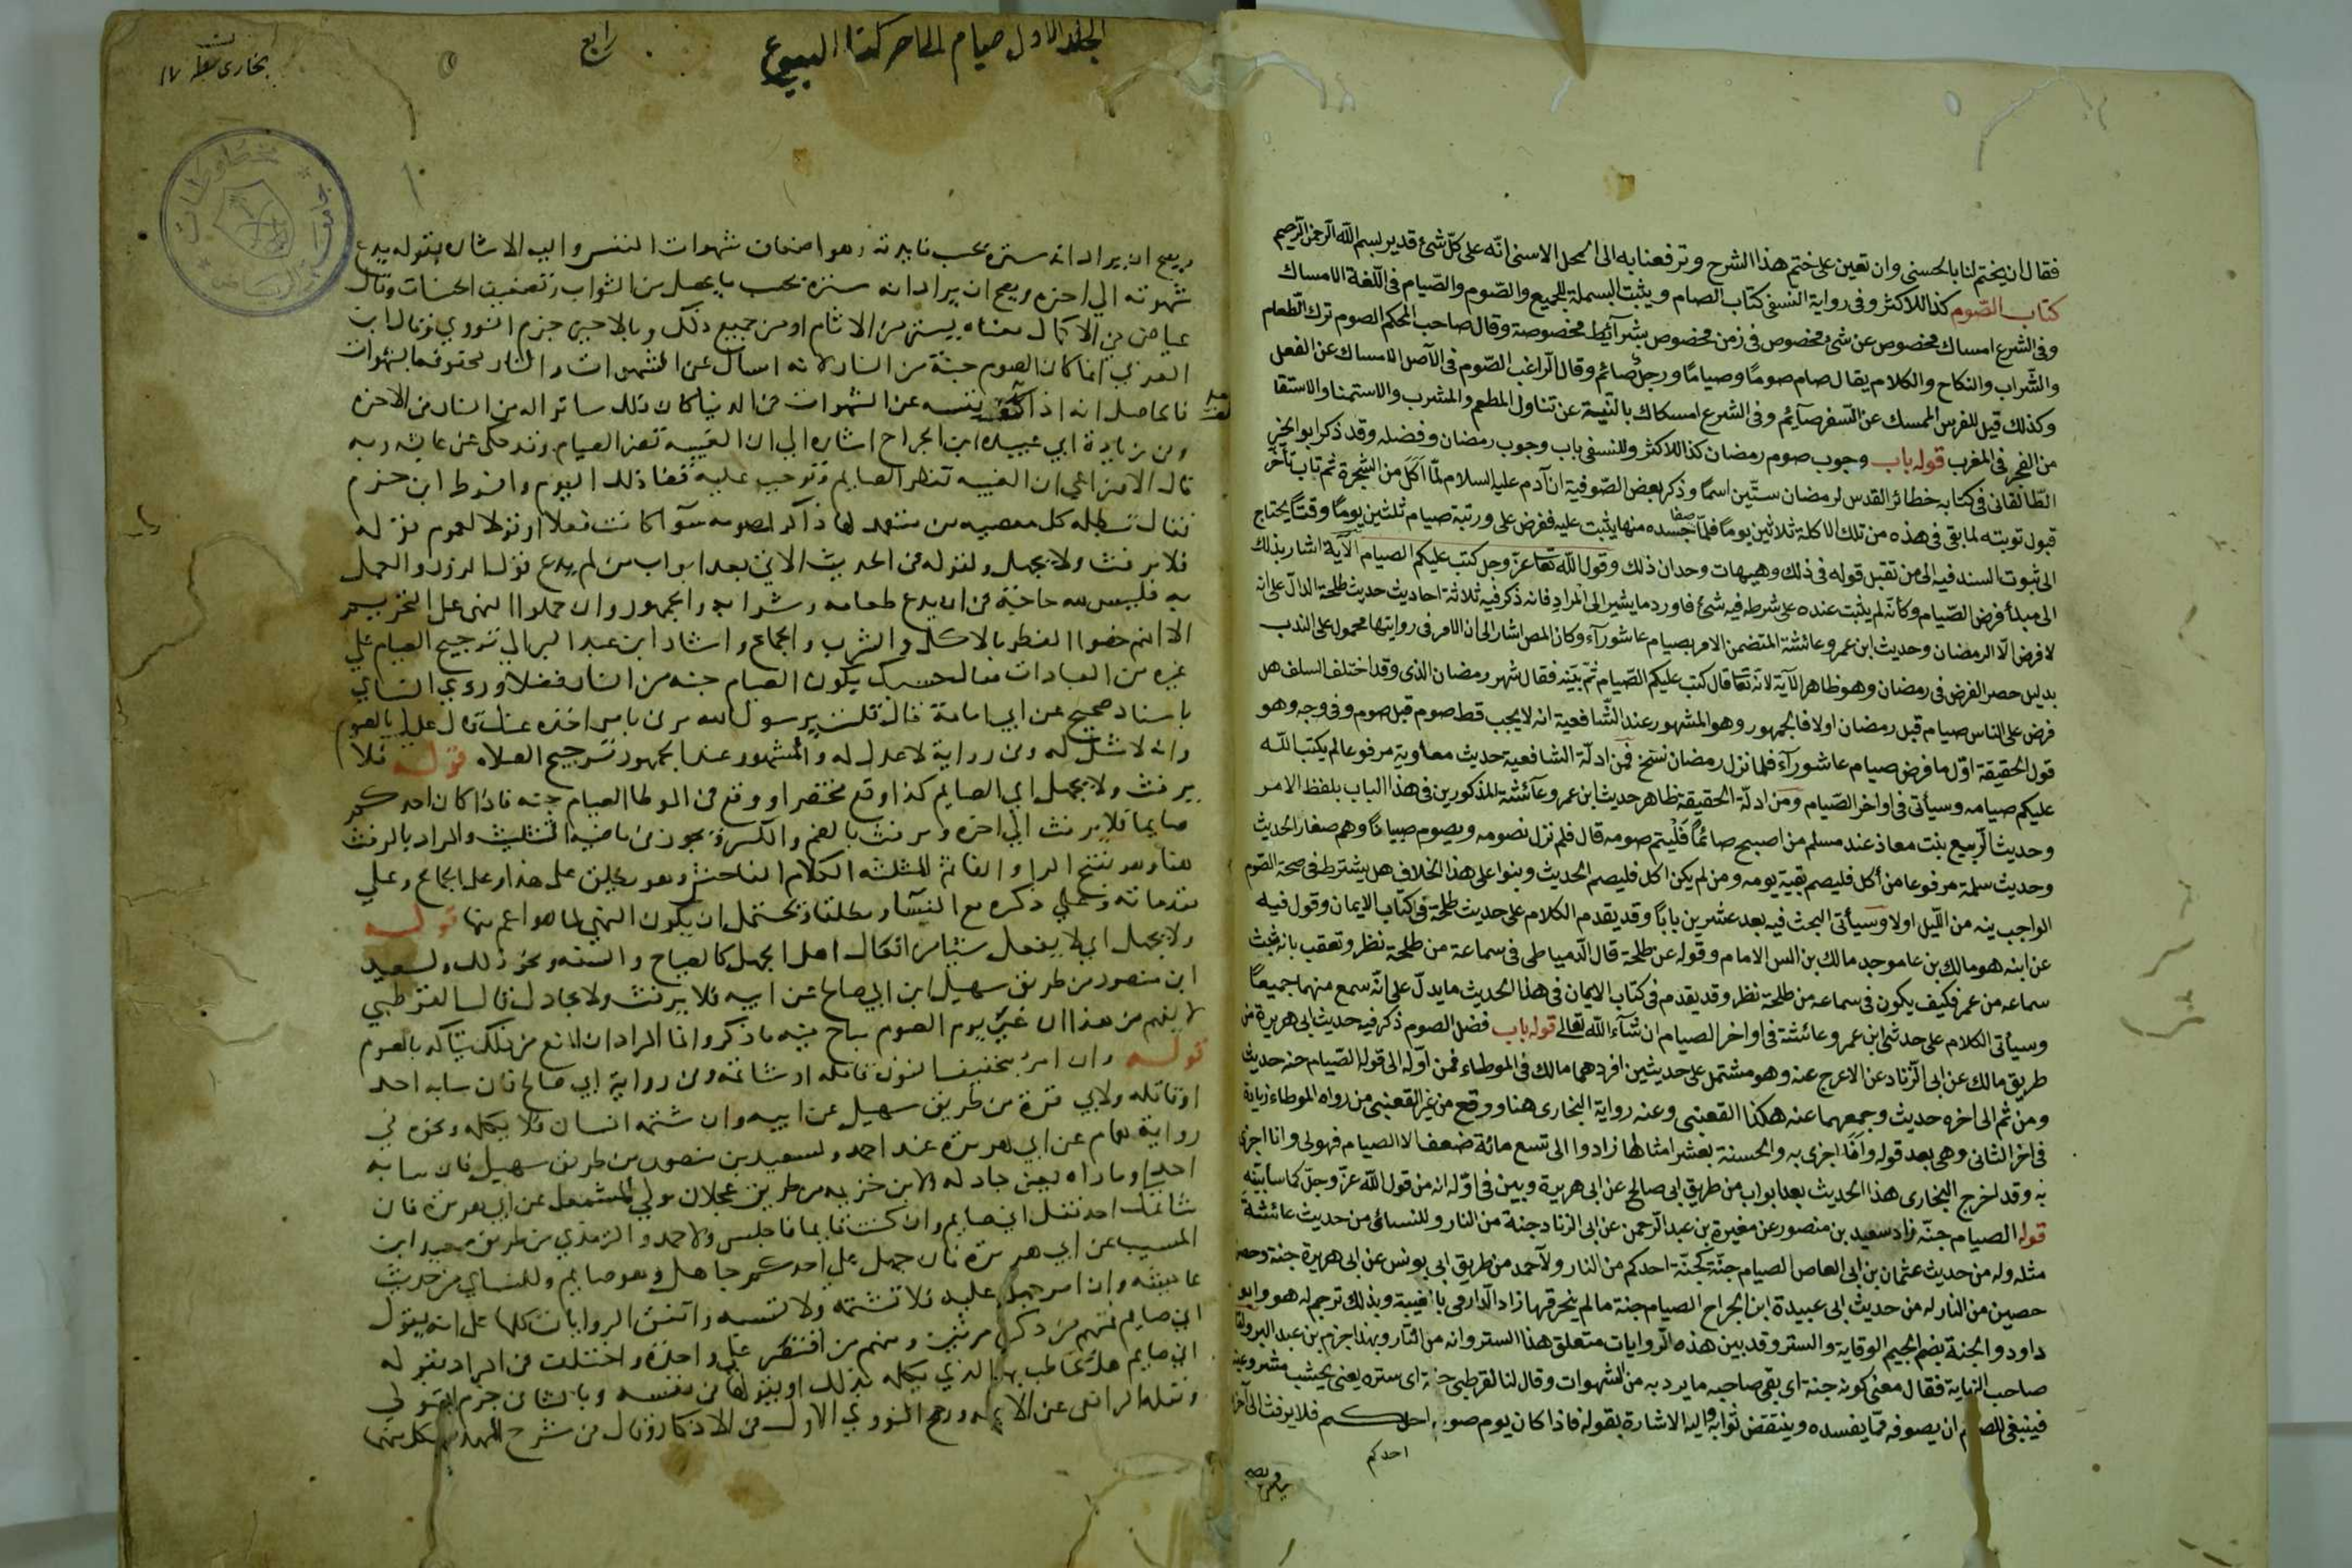 فقال ان يختم لنا بالحسنى وان تعين على ختم هذا الشرح وترفعنا به الى المحل الاسنى انه على كل شئ قدير بسم الله الرحمن الرحيم
كتاب الصوم كذا للاكثر وفى رواية النسفى كتاب الصام ويثبت البسملة للجميع والصوم والصيام فى اللغة الامساك
وفى الشرع امساك مخصوص عن شئ مخصوص فى زمن مخصوص بشرآئط مخصوصة وقال صاحب المحكم الصوم ترك الطعام
والشراب والنكاح والكلام يقال صام صوما وصياما ورجل صائم وقال الراغب الصوم فى الاصل الامساك عن الفعل
وكذلك قيل للفرس الممسك عن السفر صآيم وفى الشرع امسكاك بالنية عن تناول المطعم والمشرب والاستمنا والاستقا
من الفجر فى المغرب قوله باب وجوب صوم رمضان كذا للاكثر وللنسفى باب وجوب رمضان وفضله وقد ذكر ابو الخير
الطالقانى فى كتابه خطائر القدس لرمضان ستين اسما وذكر بعض الصوفية ان آدم عليه السلام لما اكل من الشجرة ثم تاب تأخر
قبول توبته لما بقى فى هذه من تلك الاكلة ثلاثين يوما فلما صفا جسده منها يثبت عليه ففرض على ورتبة صيام ثلثين يوما وقتا يحتاج
الى ثبوت السند فيه الى من تقبل قوله فى ذلك وهيهات وحدان ذلك وقول الله تعا عز وجل كتب عليكم الصيام الآية اشار بذلك
الى مبدأ فرض الصيام وكأنه لم يثبت عنده على شرطه فيه شئ فاورد ما يشير الى المراد فانه ذكر فيه ثلاثة احاديث حديث طلحة الدال على انه
لا فرض الا الرمضان وحديث ابن عمر وعائشة المتضمن الامر بصيام عاشورآء وكان المص اشار الى ان الامر فى روايتها محموله على الندب
بدليل حصر الفرض فى رمضان وهو ظاهر الآية لانه تعا قال كتب عليكم الصيام ثم بينه فقال شهر رمضان الذى وقد اختلف السلف هل
فرض على الناس صيام قبل رمضان اولا فالجمهور وهو المشهور عند الشافعية انه لا يجب قط صوم قبل صوم وفى وجه وهو
قول الحقيقة اول ما فرض صيام عاشورآء فلما نزل رمضان نسخ فمن ادلة الشافعية حديث معاوية مرفوعا لم يكتب الله
عليكم صيامه وسيأتى فى اواخر الصيام ومن ادلة الحقيقة ظاهر حديث ابن عمر وعآئشة المذكورين فى هذا الباب بلفظ الامر
وحديث الربيع بنت معاذ عند مسلم من اصبح صائما فليتم صومه قال فلم نزل نصومه ويصوم صبياننا وهم صغار الحديث
وحديث سلمة مرفوعا من أكل فليصم بقية يومه ومن لم يكن اكل فليصم الحديث وبنوا على هذا الخلاف هل يشترط فى صحة الصوم
الواجب ينه من الليل اولا وسيأتى البحث فيه بعد عشرين بابا وقد يقدم الكلام على حديث طلحة فى كتاب الايمان وقول فيه
عن ابنه هو مالك بن عامر جد مالك بن انس الامام وقوله عن طلحة قال الدمياطى فى سماعة من طلحة نظر وتعقب بانه ثبث
سماعه من عمر فكيف يكون فى سماعه من طلحة نظر وقد يقدم فى كتاب الايمان فى هذا الحديث ما يدل على انه سمع منهما جميعا
وسيأتى الكلام على حديثى ابن عمر وعائشة فى اواخر الصيام ان شآء الله تعالى قوله باب فضل الصوم ذكر فيه حديث ابى هريرة من
طريق مالك عن ابى الزناد عن الاعرج عنه وهو مشتمل على حديثين افردهما مالك فى الموطاء فمن اوله الى قوله الصيام جنه حديث
ومن ثم الى اخره حديث وجمعهما عنه هكذا القعنبى وعنه رواية البخارى هنا ووقع من غير القعنبى من رواه الموطاء زيادة
فى اخر الثانى وهى بعد قوله وانا اجزى به والحسنة بعشر امثالها زادوا الى تسع مائة ضعف الا الصيام فهولى وانا اجزى
به وقد اخرج البخارى هذا الحديث بعد ابواب من طريق ابى صالح عن ابى هريرة وبين فى اوله انه من قول الله عز وجل كما سابينه
قوله الصيام جنه زاد سعيد بن منصور عن مغيرة بن عبد الرحمن عن ابى الزناد جنة من النار وللنسائى من حديث عائشة
مثله وله من حديث عثمان بن ابى العاص الصيام جنة كجنة احدكم من النار ولاحمد من طريق ابى يونس عن ابى هريرة جنة وحصن
حصين من النار له من حديث ابى عبيدة ابن الجراح الصيام جنة ما لم يخرقها زاد الدارمى بالغيبة وبذلك ترجم له هو وابو
داود والجنة بضم الجيم الوقاية والستر وقد بين هذه الروايات متعلق هذا الستر وانه من النار وبهذا جزم بن عبد البر واما
صاحب النهاية فقال معنى كونه جنة اى يقى صاحبه ما يرد به من الشهوات وقال لنا القرطبى جنة اى ستره يعنى بحيث مشروعيته
فينبغى للصائم ان يصوفه مما يفسده وينتقض ثوابه واليه الاشارة بقوله فاذا كان يوم صوم احدكم فلا يرفث الى آخر
احدكم
ويصح
الجلد الاول صيام الى اخر كتا البيوع
رابع
بخارى ١٧
ويصح ان يراد انه ستره بحسب فايدته وهو اضعاف شهوات النفس واليه الاشاره بقوله يدع
شهوته الي اخره ويصح ان يراد انه ستره بحسب ما يحصل من الثواب وتضعيف الحسنات وقال
عياض في الاكمال معناه يستر من الاثام او من جميع ذلك وبالاخير جزم النووي وقال ابن
العربي انما كان الصوم جنة من النار لانه امساك عن الشهوات والنار محفوفه بالشهوات
فالحاصل انه اذا كف نفسه عن الشهوات في الدنيا كان ذلك ساترا له من النار في الاخره
وفي زيادة ابي عبيده ابن الجراح اشاره الي ان الغيبه تضر الصيام وقد حكى عن عائشه وبه
قال الاوزاعي ان الغيبه تفطر الصايم وتوجب عليه قضا ذلك اليوم وافرط ابن حزم
فقال تبطله كل معصيه من متعمد لها ذاكر لصومه سوآ كانت فعلا او قولا لعموم قوله
فلا يرفث ولا يجهل ولقوله في الحديث الاتي بعد ابواب من لم يدع قول الزور والعمل
به فليس لله حاجة في ان يدع طعامه وشرابه والجمهور وان حملوا النهي على التحريم
الا انهم خصوا الفطر بالاكل والشرب والجماع واشار ابن عبد البر الي ترجيح الصيام علي
غيره من العبادات فقال حسبك بكون الصيام جنه من النار فضلا وروي النساي
باسناد صحيح عن ابي امامة قال قلت يرسول الله مرني بامر اخذه عنك قال عليك بالصوم
وانه لا مثل له وفي رواية لا عدل له والمشهور عند الجمهور ترجيح الصلاه قوله فلا
يرفث ولا يجهل اي الصايم كذا وقع مختصرا ووقع في الموطا الصيام جنه فاذا كان احدكم
صايما فلا يرفث الي اخره ويرفث بالضم والكسر ويجوز في ماضيه التثليث والمراد بالرفث
هنا وهو بفتح الرا والفا ثم المثلثه الكلام الفاحش وهو يطلق على هذا وعلى الجماع وعلي
مقدماته وعلي ذكره مع النسآ او مطلقا ويحتمل ان يكون النهي لما هو اعم منها قوله
ولا يجهل اي لا يفعل شيئا من افعال اهل الجهل كالصياح والسفه ونحو ذلك ولسعيد
ابن منصور من طريق سهيل ابن ابي صالح عن ابيه فلا يرفث ولا يجادل قال القرطبي
لا يفهم من هذا ان غير يوم الصوم يباح فيه ما ذكر وانما المراد ان المنع من ذلك يتاكد بالصوم
قوله وان امرؤ بتخفيف النون قاتله او شاتمه وفي رواية ابي صالح فان سابه احد
او قاتله ولابي قرة من طريق سهيل عن ابيه وان شتمه انسان فلا يكلمه ونحوه في
رواية همام عن ابي هريره عند احمد ولسعيد بن منصور من طريق سهيل فان سابه
احد او ماراه يعني جادله ولابن خزيمه من طريق عجلان مولي المشمعل عن ابي هريرة فان
شاتمك احد فقل اني صايم وان كنت قايما فاجلس ولاحمد والترمذي من طريق سعيد ابن
المسيب عن ابي هريرة فان جهل علي احدكم جاهل وهو صايم وللنساي من حديث
عايشه وان امرؤ جهل عليه فلا تشتمه ولا تسبه واتفق الروايات كلها على انه يقول
اني صايم فمنهم من ذكرها مرتين ومنهم من اقتصر علي واحدة واختلف في المراد بقوله
اني صايم هل يخاطب بها الذي يكلمه بذلك او يقولها في نفسه وبالثاني جزم المتولي
ونقله الرافعي عن الائمه ورجح النووي الاول في الاذكار وقال في شرح المهذب كل منهما